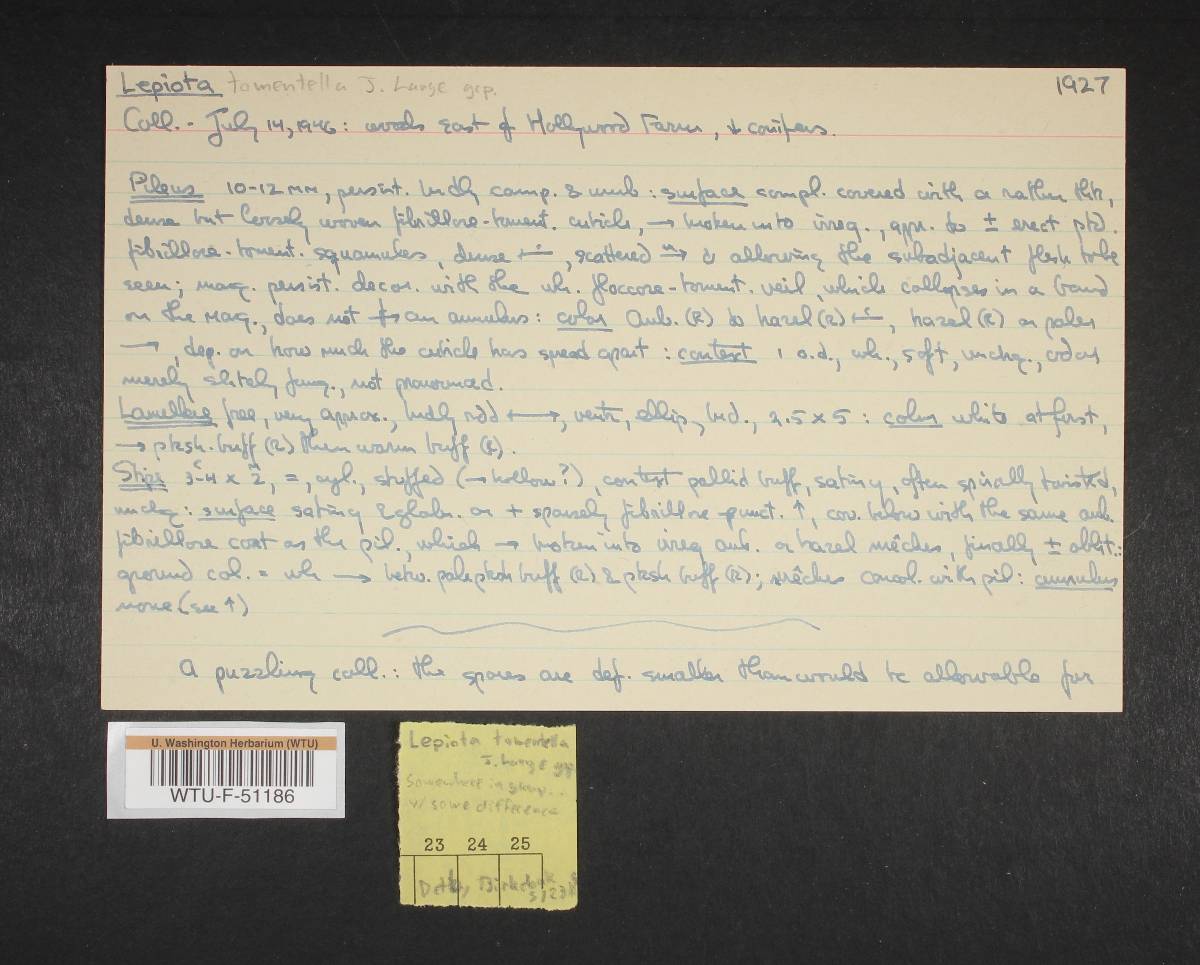 Lepiota tomentella J. Lange grp. 1927
Coll. - July 14, 1946: woods east of Hollywood Farm, ↓ conifers.
Pileus 10-12 mm, persist. brdly camp. & umb: surface compl. covered with a rather thin,
dense but loosely woven fibrillose-toment. cuticle, → broken into irreg., appr. to ± erect ptd.
fibrillose-toment. squamules, dense, scattered → & allowing the subadjacent flesh to be
seen; marg. persist. decor. with the wh. floccose-toment. veil, which collapses in a band
on the marg., does not an annulus: color Aub. (R) to hazel (R), hazel (R) or paler
→, dep. on how much the cuticle has spread apart: context 1 o.d., wh., soft, unchg., odor
merely slitely fung., not pronounced.
Lamellae free, very approx., brdly rdd ⟷, ventr, ellip., brd., 2.5 x 5: color white at first,
→ pksh. buff (R) then warm buff (R).
Stipe 3-4 x 2, =, cyl., stuffed (→ hollow?), context pallid buff, satiny, often spirally twisted,
unchg: surface satiny & glabr. or + sparsely fibrillose-punct. ↑, cov. below with the same aub.
fibrillose coat as the pil., which → broken into irreg aub. or hazel mêches, finally ± oblit.:
ground col. = wh → betw. pale pksh buff (R) & pksh buff (R); mêches concol. with pil: annulus
none (see ↑)
A puzzling coll.: the spores are def. smaller than would be allowable for
U. Washington Herbarium (WTU)
WTU-F-51186
Lepiota tomentella
J. Lange grp
Somewhere in group...
w/ some difference
23 24 25
Det by
5/23/